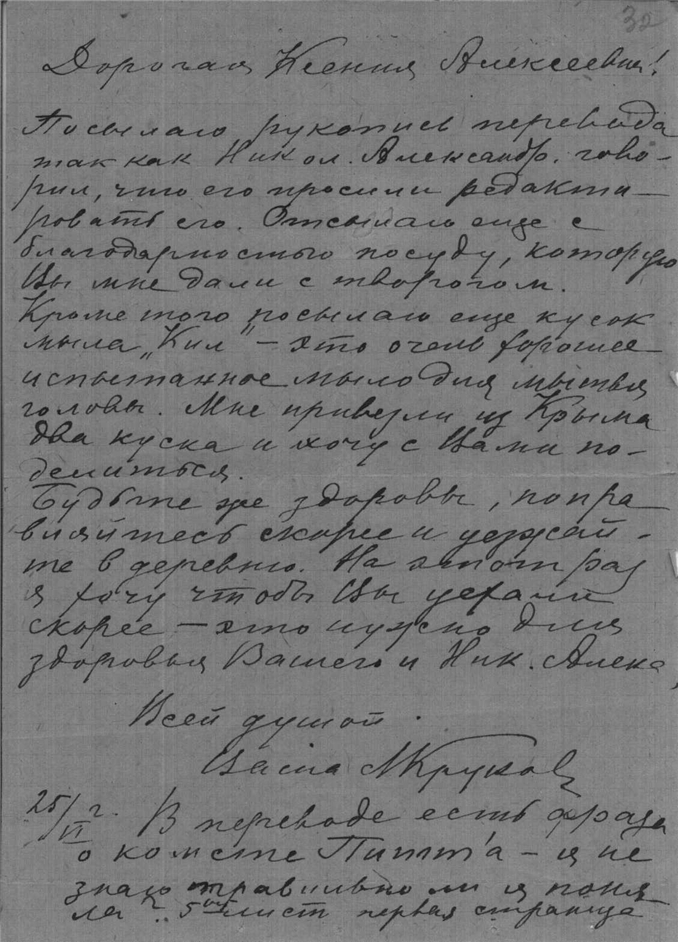 32
Дорогая Ксения Алексеевна!
Посылаю рукопись перевода
так как Никол. Александр. гово-
рил, что его просили редакти-
ровать его. Отсылаю еще с
благодарностью посуду, которую
Вы мне дали с творогом.
Кроме того посылаю еще кусок
мыла „Кил" – это очень хорошее
испытанное мыло для мытья
головы. Мне привезли из Крыма
два куска и хочу с Вами по-
делиться.
Будьте же здоровы, попра-
вляйтесь скорее и уезжай-
те в деревню. На этот раз
я хочу чтобы Вы уехали
скорее – это нужно для
здоровья Вашего и Ник. Алекс.
Всей душой.
Ваша М Крукov
25/VI г. В переводе есть фраза
о комете Питт'а – я не
знаю правильно ли я поня-
ла? 5ый лист первая страница